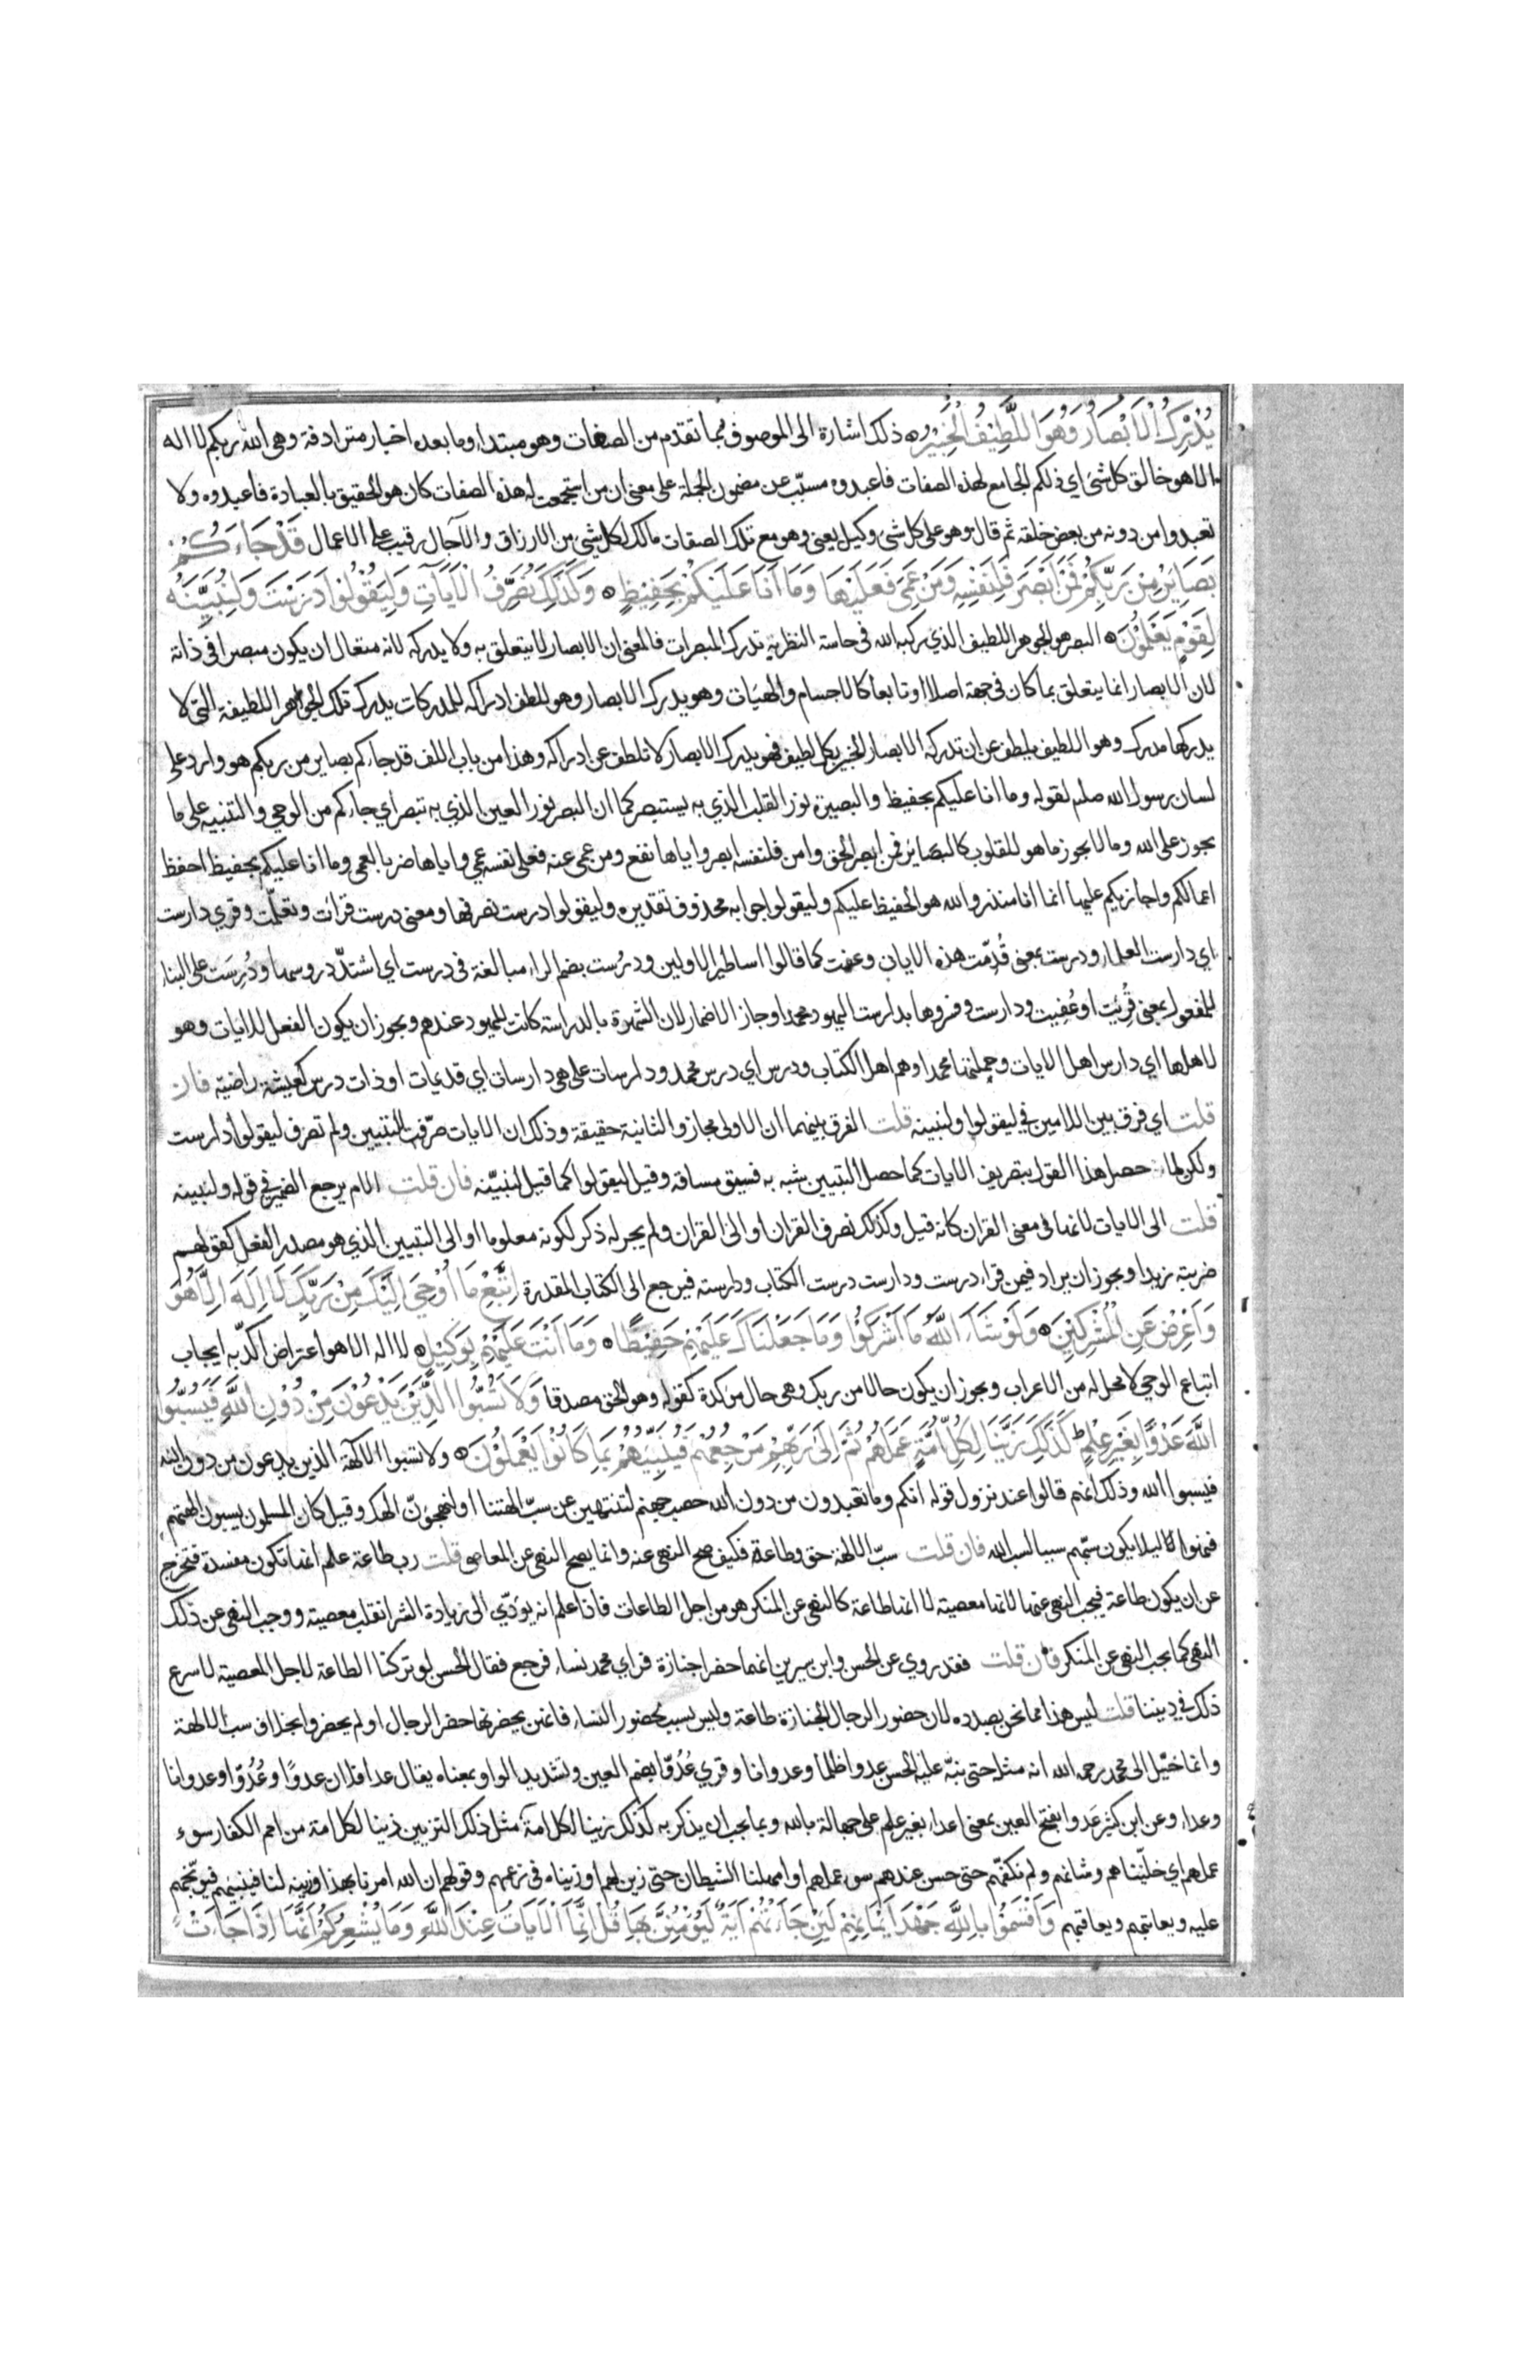 يُدْرِكُ الْأَبْصَارَ وَهُوَ اللَّطِيفُ الْخَبِيرُ ذلك اشارة الى الموصوف بما تقدم من الصفات وهو مبتدا وما بعده اخبار مترادفة وهى الله ربكم لا اله
الا هو خالق كل شئ اي ذلكم الجامع لهذه الصفات فاعبدوه مسبّب عن مضمون الجملة على معنى ان من استجمعت له هذه الصفات كان هو الحقيق بالعبادة فاعبدوه ولا
تعبدوا من دونه من بعض خلقه ثم قال وهو على كل شى وكيل يعنى وهو مع تلك الصفات مالك لكل شي من الارزاق والآجال رقيب على الاعمال قَدْ جَاءَكُمْ
بَصَايِرُ مِنْ رَبِّكُمْ فَمَنْ أَبْصَرَ فَلِنَفْسِهِ وَمَنْ عَمِيَ فَعَلَيْهَا وَمَا أَنَا عَلَيْكُمْ بِحَفِيظٍ وَكَذَلِكَ نُصَرِّفُ الْآيَاتِ وَلِيَقُولُوا دَرَسْتَ وَلِنُبَيِّنَهُ
لِقَوْمٍ يَعْلَمُونَ البصر هو الجوهر اللطيف الذي ركبه الله فى حاسة النظر به تدرك المبصرات فالمعنى ان الابصار لا يتعلق به ولا يدركه لانه متعال ان يكون مبصرا فى ذاته
لان الابصار انما يتعلق بما كان فى جهة اصلا او تابعا كالاجسام والهيات وهو يدرك الابصار وهو للطف ادراكه للمدركات يدرك تلك الجواهر اللطيفة التى لا
يدركها مدرك وهو اللطيف يلطف عن ان تدركه الابصار الخبير بكل لطيف فهو يدرك الابصار لا تلطف عن ادراكه وهذا من باب اللف قد جاءكم بصاير من ربكم هو وارد على
لسان رسول الله صلم لقوله وما انا عليكم بحفيظ والبصيرة نور القلب الذي به يستبصر كما ان البصر نور العين الذي به تبصر اي جاءكم من الوحي والتنبيه على ما
يجوز على الله وما لا يجوز ما هو للقلوب كالبصائر فمن ابصر الحق وامن فلنفسه ابصر واياها نفع ومن عمى عنه فعلى نفسه عمي واياها ضر بالعمى وما انا عليكم بحفيظ احفظ
اعمالكم واجازيكم عليها انما انا منذر والله هو الحفيظ عليكم وليقولوا جوابه محذوف تقديره وليقولوا درست نصرفها ومعنى درست قرات وتعلّمت وقري دارست
اي دارست العلماء ودرست بمعنى قُدِّمت هذه الايات وعفت كما قالوا اساطير الاولين ودرُست بضم الراء مبالغة فى درست اي اشتدّ دروسها ودُرِسَت على البناء
للمفعول بمعنى قُرِئت او عُفِيت ودارست وفسروها بدارست اليهود محمدا وجاز الاضمار لان الشهرة بالدراسة كانت لليهود عندهم ويجوز ان يكون الفعل للايات وهو
لاهلها اي دارس اهل الايات وحملتها محمدا وهم اهل الكتاب ودرس اي درس محمد ودارسات على هى دارسات اي قديمات او ذات درس كعيشة راضية فان
قلت اي فرق بين اللامين في ليقولوا ولنبينه قلت الفرق بينهما ان الاولى مجاز والثانية حقيقة وذلك ان الايات صرّفت للتبيين ولم تصرف ليقولوا دارست
ولكن لما حصل هذا القول بتصريف الايات كما حصل التبيين شبه به فسيق مساقه وقيل ليقولوا كما قيل لنبيّنه فان قلت الام يرجع الضمير في قوله ولنبينه
قلت الى الايات لانها فى معنى القران كانه قيل وكذلك نصرف القران او الى القران ولم يجر له ذكر لكونه معلوما او الى التبيين الذي هو مصدر الفعل كقولهم
ضربته زيدا ويجوز ان يراد فيمن قراء درست ودارست درست الكتاب ودارسته فيرجع الى الكتاب المقدرة اِتَّبِعْ مَا أُوْحِيَ إِلَيْكَ مِنْ رَبِّكَ لَا إِلَهَ إِلَّا هُوَ
وَأَعْرِضْ عَنِ الْمُشْرِكِينَ وَلَوْ شَاءَ اللَّهُ مَا أَشْرَكُوا وَمَا جَعَلْنَاكَ عَلَيْهِمْ حَفِيظًا وَمَا أَنْتَ عَلَيْهِمْ بِوَكِيلٍ لا اله الا هو اعتراض اكدّ به ايجاب
اتباع الوحي لا محل له من الاعراب ويجوز ان يكون حالا من ربك وهى حال مؤكدة كقوله وهو الحق مصدقا وَلَا تَسُبُّوا الَّذِيْنَ يَدْعُوْنَ مِنْ دُوْنِ اللَّهِ فَيَسُبُّوا
اللَّهَ عَدْوًا بِغَيْرِ عِلْمٍ كَذَلِكَ زَيَّنَّا لِكُلِّ أُمَّةٍ عَمَلَهُمْ ثُمَّ إِلَى رَبِّهِمْ مَرْجِعُهُمْ فَيُنَبِّئُهُمْ بِمَا كَانُوا يَعْمَلُوْنَ ولا تسبوا الآلهة الذين يدعون من دون الله
فيسبوا الله وذلك انهم قالوا عند نزول قوله انكم وما تعبدون من دون الله حصب جهنم لتنتهين عن سبّ الهتنا او لنهجونّ الهك وقيل كان المسلمون يسبون الهتهم
فنهوا لئلا يكون سبّهم سببا لسب الله فان قلت سبّ الالهة حق وطاعة فكيف صح النهى عنه وانما يصح النهى عن المعاصى قلت رب طاعة علم انها تكون مفسدة فتخرج
عن ان يكون طاعة فيجب النهى عنها لانها معصيته لا انها طاعة كالنهى عن المنكر هو من اجل الطاعات فاذا علم انه يؤدّي الى زيادة الشر انقلب معصيته ووجب النهى عن ذلك
النهى كما يجب النهى عن المنكر فان قلت فقد روي عن الحسن وابن سيرين انهما حضرا جنازة فراي محمد نساء فرجع فقال الحسن لو تركنا الطاعة لاجل المعصية لاسرع
ذلك في ديننا قلت ليس هذا مما نحن بصدده لان حضور الرجال الجنازة طاعة وليس بسبب لحضور النساء فانهن يحضرنها حضر الرجال او لم يحضروا بخلاف سب الالهة
وانما خيّل الى محمد رحمه الله انه مثله حتى نبّه عليه الحسن عدوا ظلما وعدوانا وقري عُدُوّا بضم العين وتشديد الواو بمعناه يقال عدا فلان عدوًا وعُدُوّا وعدوانا
وعداء وعن ابن كثير عَدوا بفتح العين بمعنى اعداء بغير علم على جهالة بالله وبما يجب ان يذكر به كذلك زينا لكل امة مثل ذلك التزيين زينا لكل امة من امم الكفار سوء
عملهم اي خلّيناهم وشانهم ولم نكفّهم حتى حسن عندهم سوء عملهم او امهلنا الشيطان حتى زين لهم او زيناه فى زعمهم وقولهم ان الله امرنا بهذا وزينه لنا فينبئهم فيوبّخهم
عليه ويعاتبهم ويعاقبهم وَأَقْسَمُوْا بِاللَّهِ جَهْدَ أَيْمَانِهِمْ لَئِنْ جَاءَتْهُمْ آيَةٌ لَيُؤْمِنُنَّ بِهَا قُلْ إِنَّمَا الْآيَاتُ عِنْدَ اللَّهِ وَمَا يُشْعِرُكُمْ أَنَّهَا إِذَا جَاءَتْ